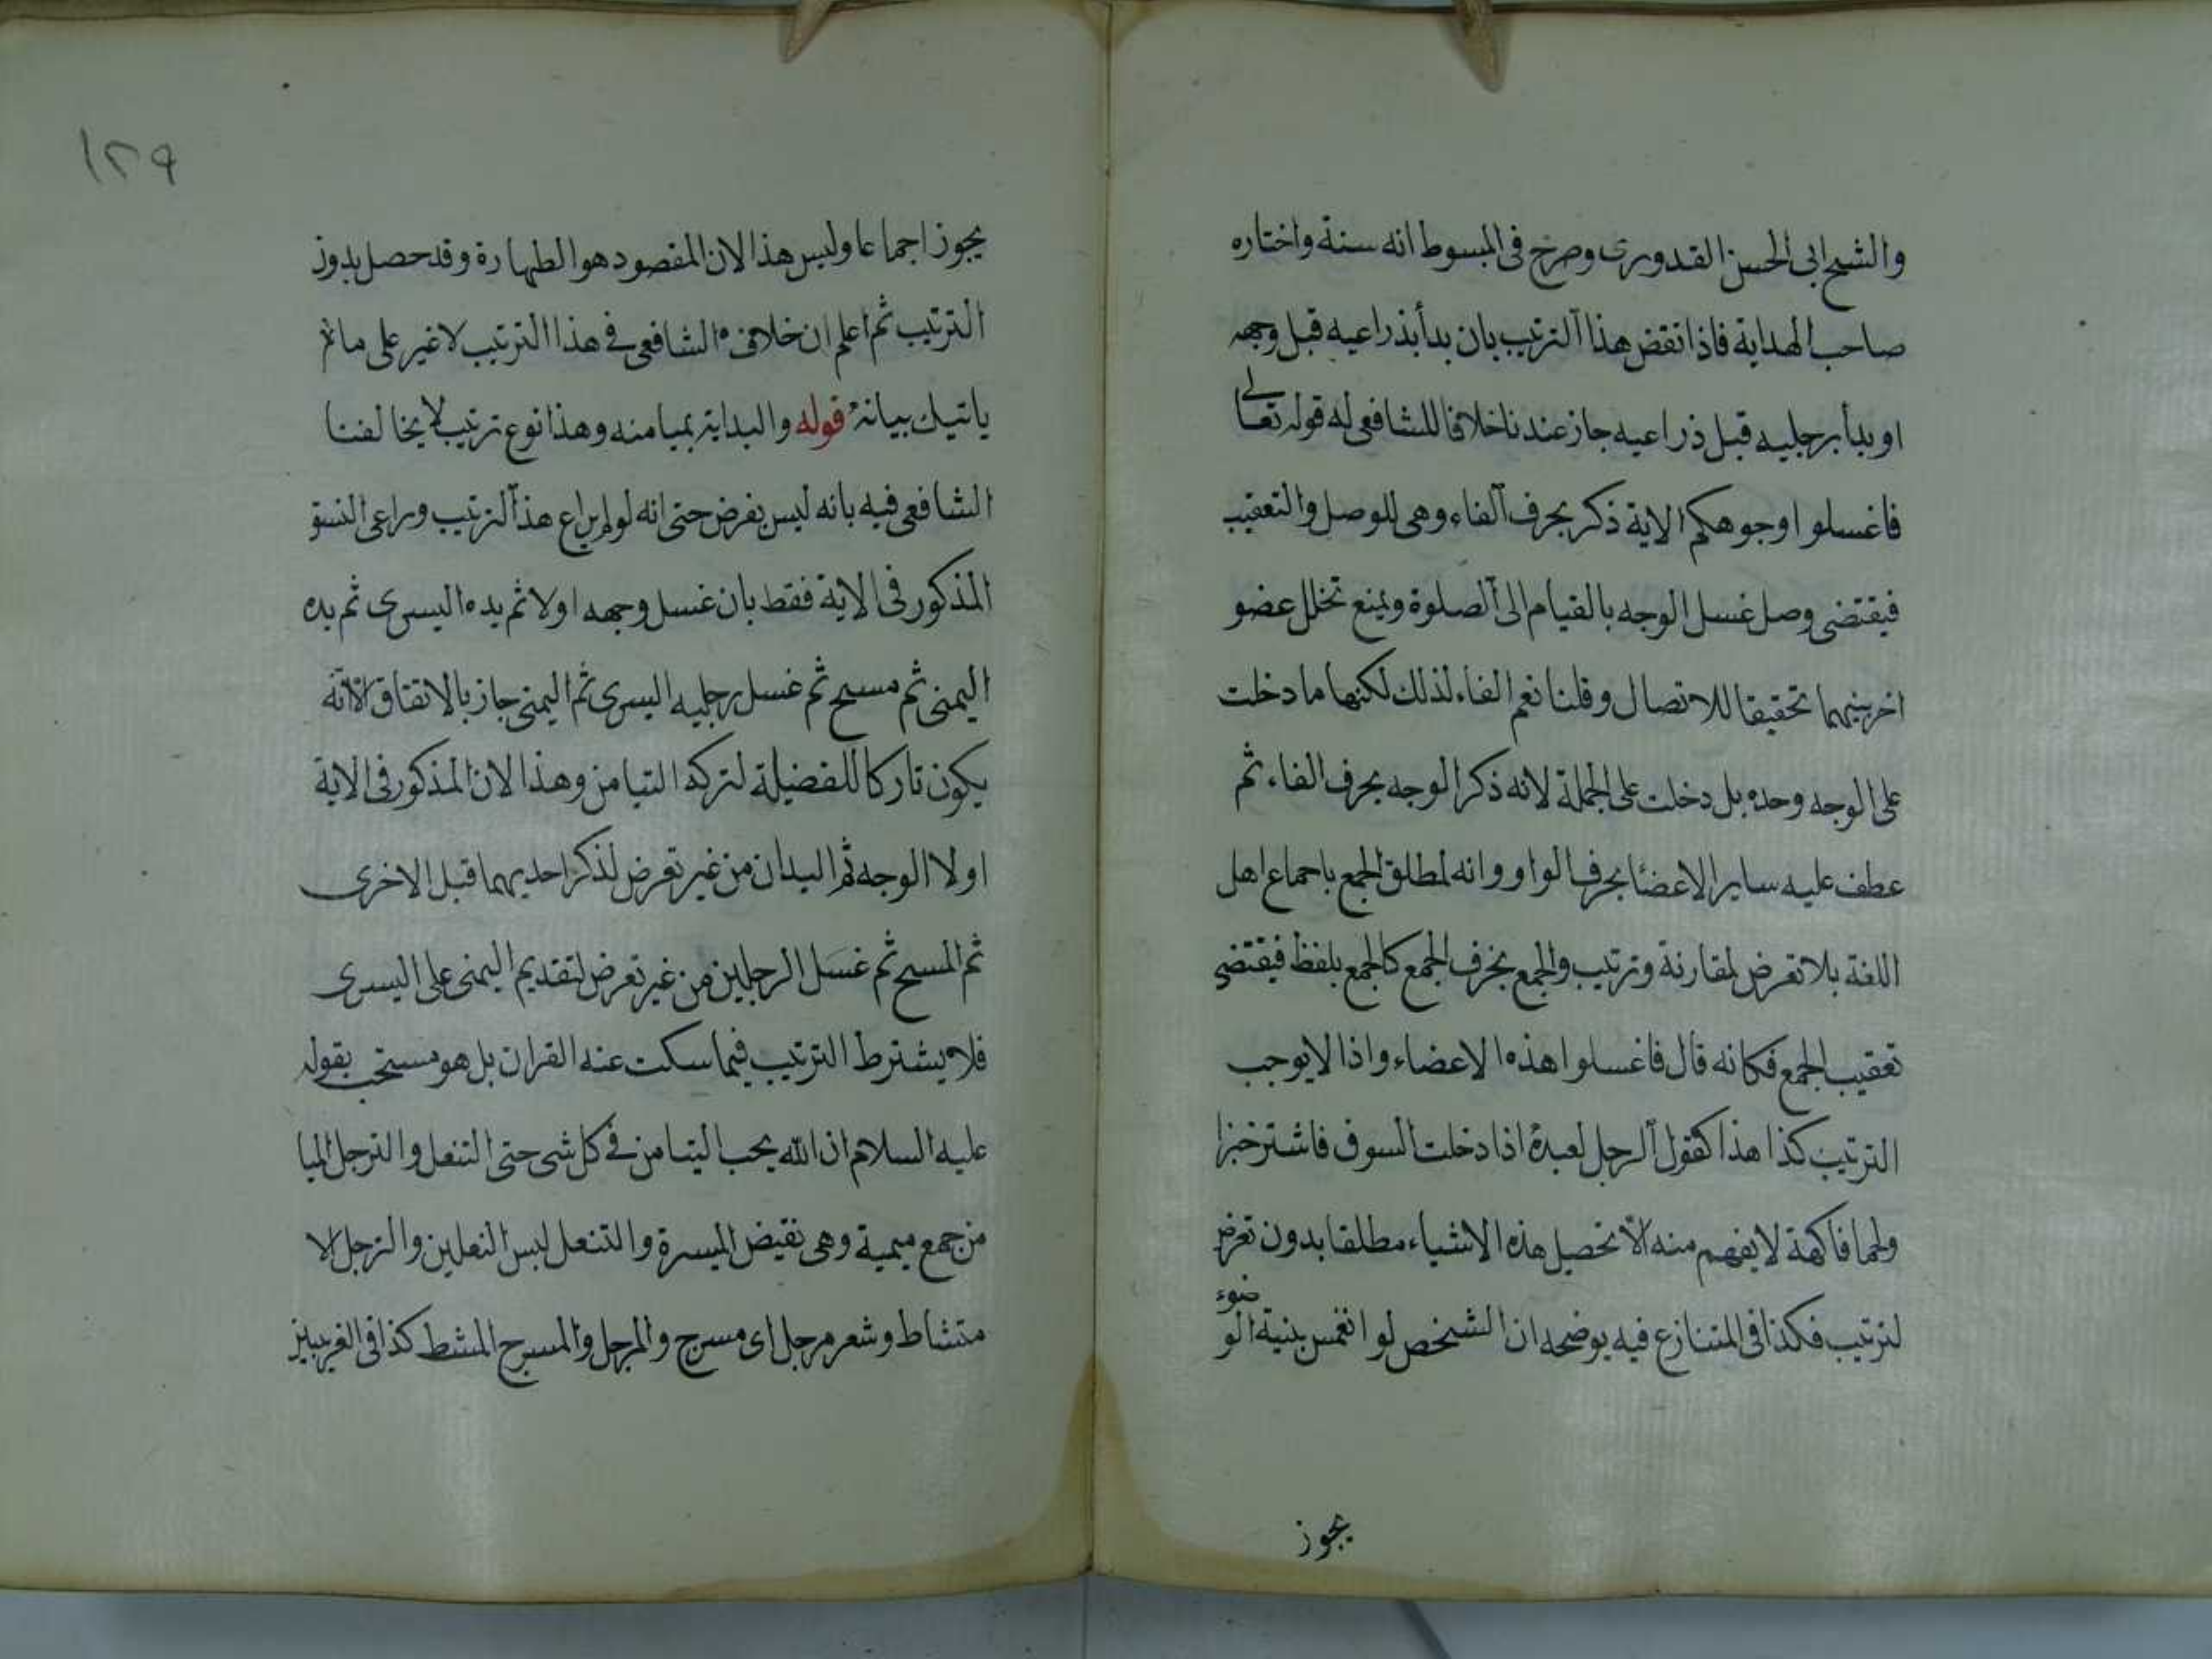 والشيخ ابى الحسن القدورى وصرح فى المبسوط انه سنة واختاره
صاحب الهداية فاذا نقض هذا الترتيب بان بدأ بذراعيه قبل وجهه
او بدأ برجليه قبل ذراعيه جاز عندنا خلافا للشافعى له قوله تعالى
فاغسلوا وجوهكم الاية ذكر بحرف الفاء وهى للوصل والتعقيب
فيقتضى وصل غسل الوجه بالقيام الى الصلوة ويمنع تخلل عضو
اخر بينهما تحقيقا للاتصال وقلنا نعم الفاء لذلك لكنها ما دخلت
على الوجه وحده بل دخلت على الجملة لانه ذكر الوجه بحرف الفاء ثم
عطف عليه ساير الاعضا بحرف الواو وانه لمطلق الجمع باجماع اهل
اللغة بلا تعرض لمقارنة وترتيب والجمع بحرف الجمع كالجمع بلفظ فيقتضى
تعقيب الجمع فكانه قال فاغسلوا هذه الاعضاء واذا لا يوجب
الترتيب كذا هذا كقول الرجل لعبده اذا دخلت السوق فاشتر خبزا
ولحما فاكهة لا يفهم منه الا تحصيل هذه الاشياء مطلقا بدون تعرض
لترتيب فكذا فى المتنازع فيه يوضحه ان الشخص لو انغمس بنية الوضوء
يجوز
١٢٩
يجوز اجماعا وليس هذا الا لان المقصود هو الطهارة وقد حصل بدون
الترتيب ثم اعلم ان خلاف الشافعى فى هذا الترتيب لا غير على ما
ياتيك بيانه قوله والبداية بميامنه وهذا نوع ترتيب لا يخالفنا
الشافعى فيه بانه ليس بفرض حتى انه لو لم يراع هذا الترتيب وراعى النسق
المذكور فى الاية فقط بان غسل وجهه اولا ثم يده اليسرى ثم يده
اليمنى ثم مسح ثم غسل رجليه اليسرى ثم اليمنى جاز بالاتفاق لانه
يكون تاركا للفضيلة لتركه التيامن وهذا لان المذكور فى الاية
اولا الوجه ثم اليدان من غير تعرض لذكر احديهما قبل الاخرى
ثم المسح ثم غسل الرجلين من غير تعرض لتقديم اليمنى على اليسرى
فلا يشترط الترتيب فيما سكت عنه القران بل هو مستحب بقوله
عليه السلام ان الله يحب التيامن فى كل شى حتى التنعل والترجل الميا
من جمع ميمنة وهى نقيض الميسرة والتنعل لبس النعلين والترجل الا
متشاط وشعر مرجل اى مسرح والمرجل والمسرح المشط كذا فى الغريبين